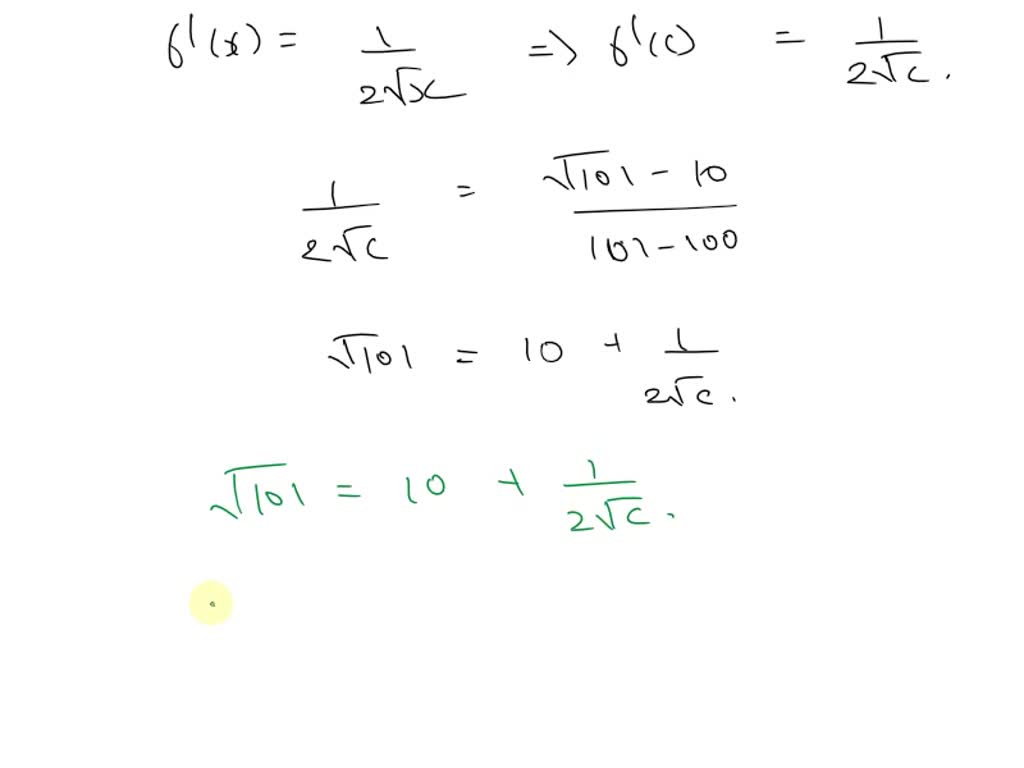 f'(x) = 1/(2√x) => f'(c) = 1/(2√c).
1/(2√c) = (√101 - 10)/(101 - 100)
√101 = 10 + 1/(2√c).
√101 = 10 + 1/(2√c).